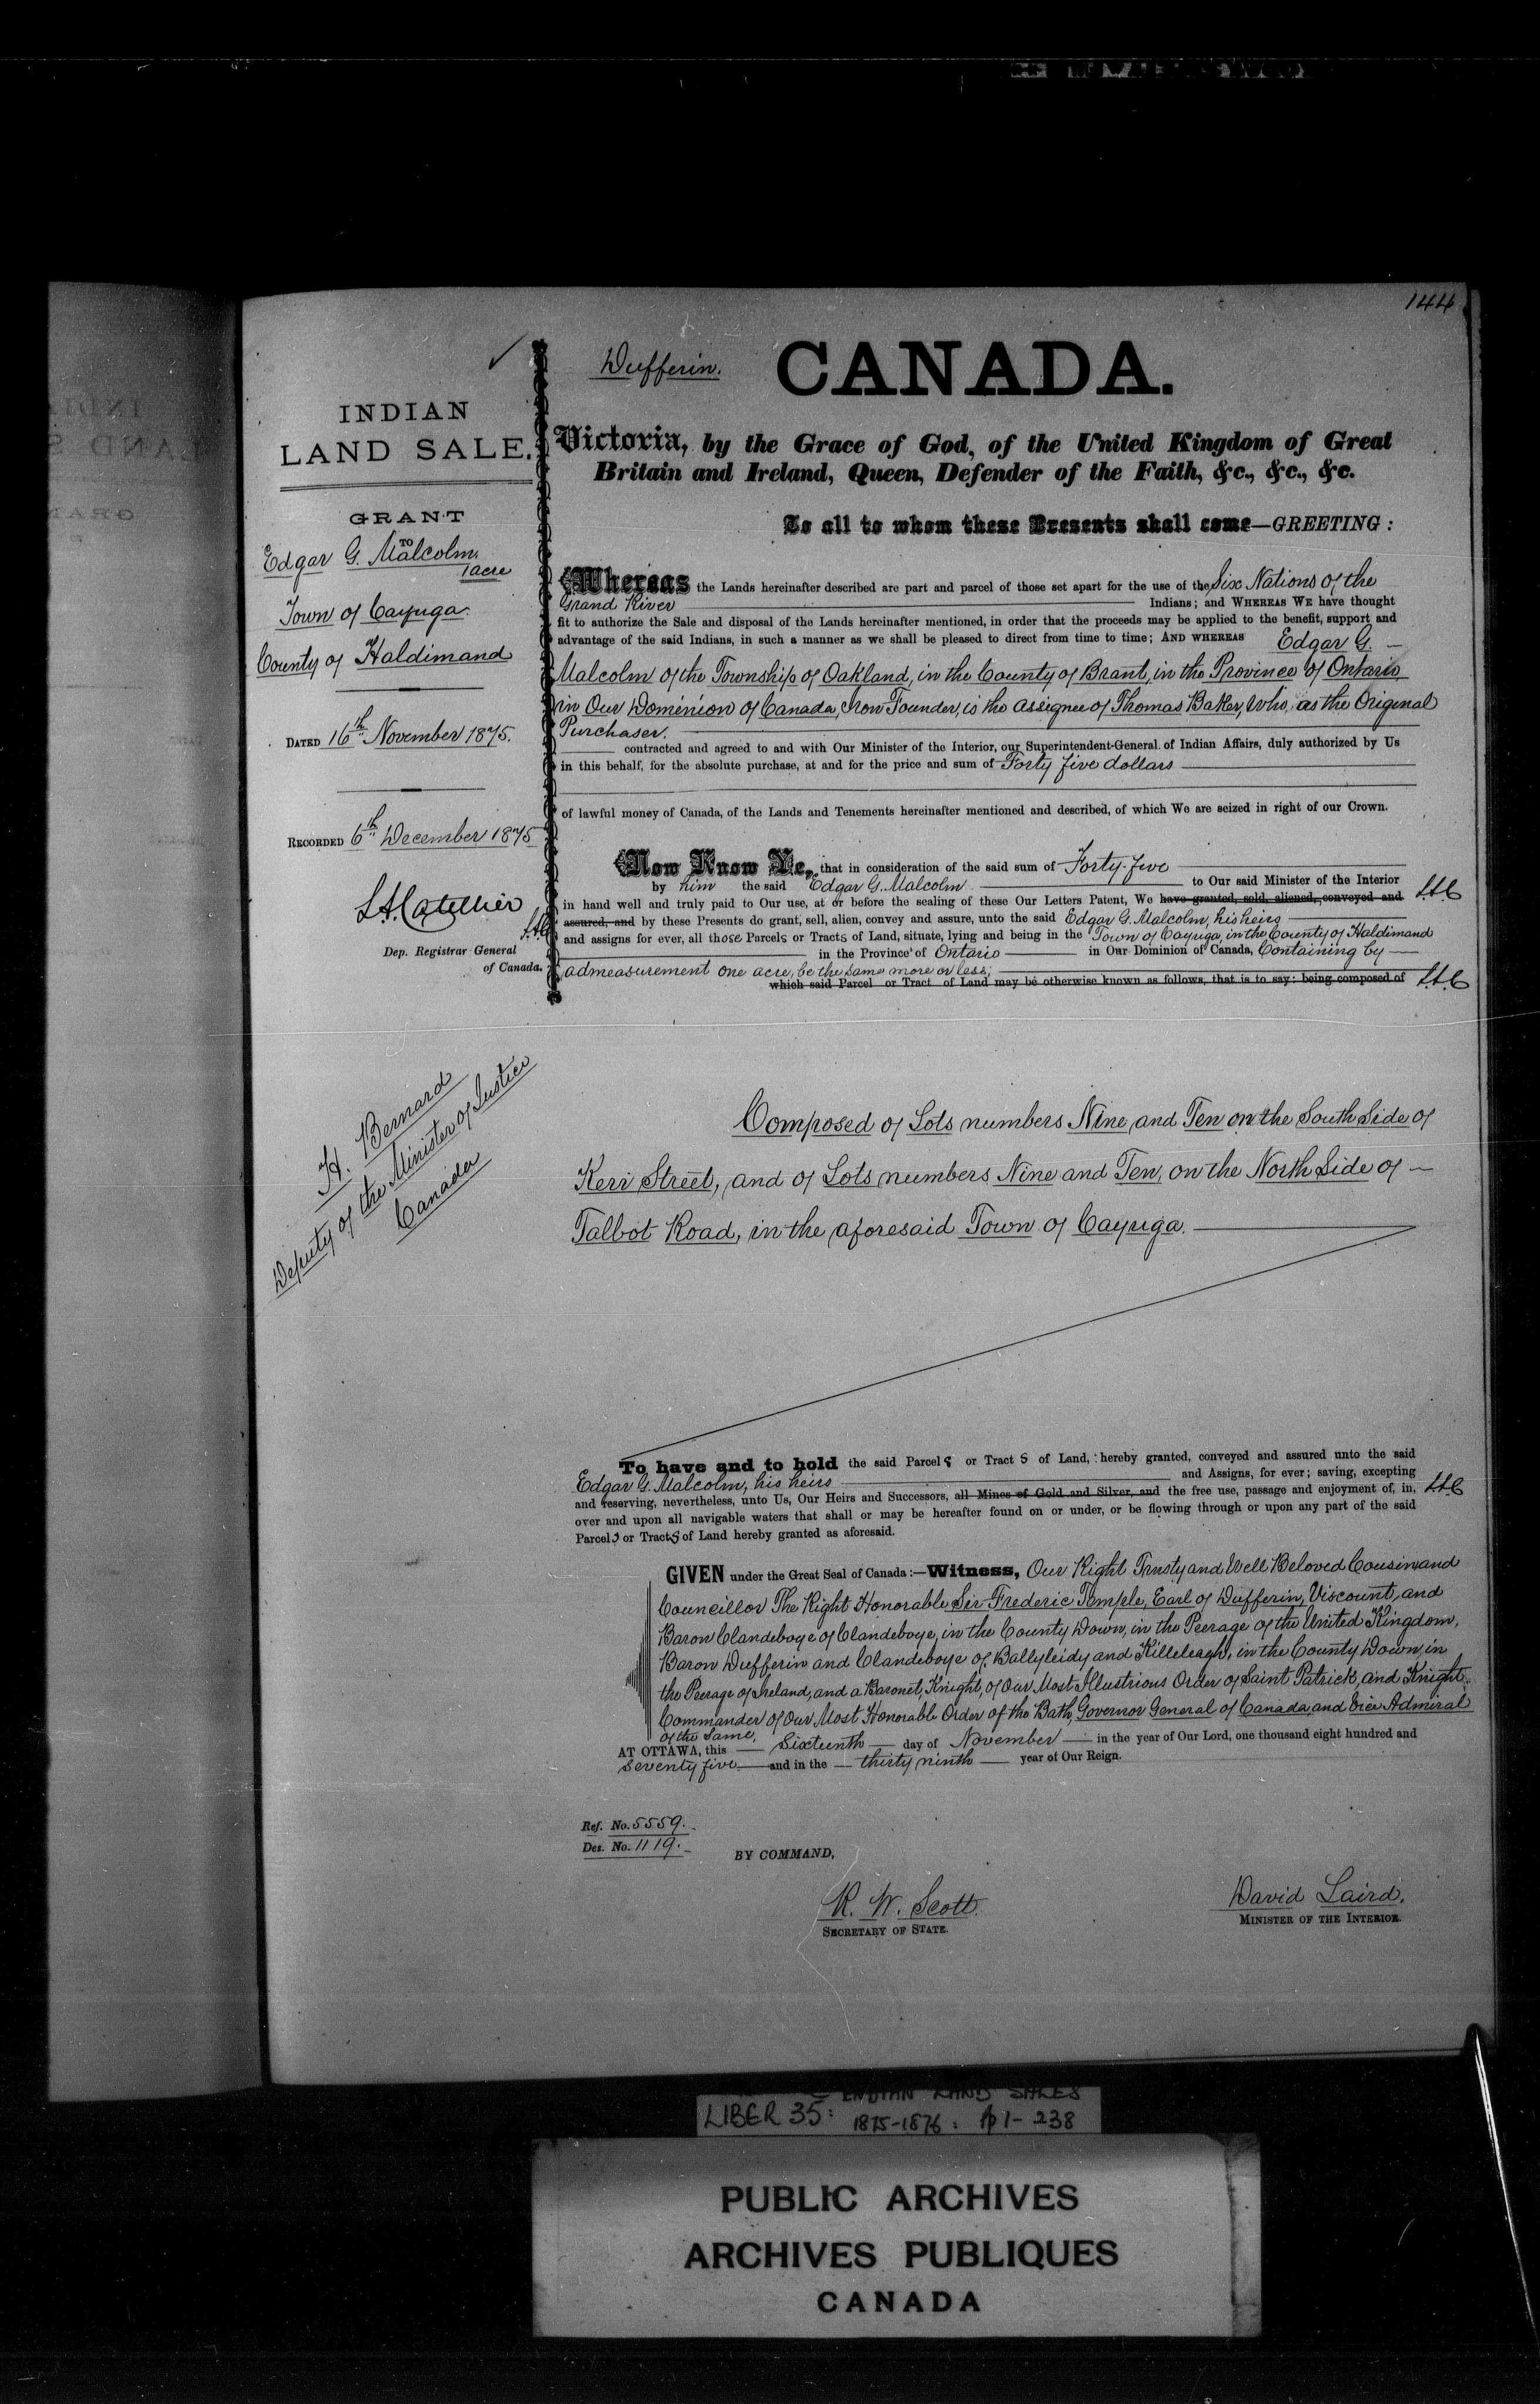 144
Dufferin. CANADA.
INDIAN
LAND SALE.
GRANT
TO
Edgar G. Malcolm.
1 acre
Town of Cayuga.
County of Haldimand
DATED 16th November 1875.
RECORDED 6th December 1875
L.A. Catellier
Dep. Registrar General
of Canada.
L.A.C
H. Bernard
Deputy of the Minister of Justice
Canada
Victoria, by the Grace of God, of the United Kingdom of Great
Britain and Ireland, Queen, Defender of the Faith, &c., &c., &c.
To all to whom these Presents shall come—GREETING:
Whereas the Lands hereinafter described are part and parcel of those set apart for the use of the Six Nations of the
Grand River Indians; and WHEREAS WE have thought
fit to authorize the Sale and disposal of the Lands hereinafter mentioned, in order that the proceeds may be applied to the benefit, support and
advantage of the said Indians, in such a manner as we shall be pleased to direct from time to time; AND WHEREAS Edgar G. —
Malcolm of the Township of Oakland, in the County of Brant, in the Province of Ontario
in Our Dominion of Canada, Iron Founder, is the assignee of Thomas Baker, who, as the Original
Purchaser.
contracted and agreed to and with Our Minister of the Interior, our Superintendent-General of Indian Affairs, duly authorized by Us
in this behalf, for the absolute purchase, at and for the price and sum of Forty five dollars
of lawful money of Canada, of the Lands and Tenements hereinafter mentioned and described, of which We are seized in right of our Crown.
Now Know Ye, that in consideration of the said sum of Forty-five
by him the said Edgar G. Malcolm to Our said Minister of the Interior
in hand well and truly paid to Our use, at or before the sealing of these Our Letters Patent, We have granted, sold, aliened, conveyed and L.A.C
assured, and by these Presents do grant, sell, alien, convey and assure, unto the said Edgar G. Malcolm, his heirs
and assigns for ever, all those Parcels or Tracts of Land, situate, lying and being in the Town of Cayuga, in the County of Haldimand
in the Province of Ontario in Our Dominion of Canada, Containing by —
admeasurement one acre, be the same more or less;
which said Parcel or Tract of Land may be otherwise known as follows, that is to say: being composed of L.A.C
Composed of Lots numbers Nine and Ten on the South Side of
Kerr Street, and of Lots numbers Nine and Ten, on the North Side of —
Talbot Road, in the aforesaid Town of Cayuga.
To have and to hold the said Parcels or Tracts of Land, hereby granted, conveyed and assured unto the said
Edgar G. Malcolm, his heirs and Assigns, for ever; saving, excepting
and reserving, nevertheless, unto Us, Our Heirs and Successors, all Mines of Gold and Silver, and the free use, passage and enjoyment of, in, L.A.C
over and upon all navigable waters that shall or may be hereafter found on or under, or be flowing through or upon any part of the said
Parcels or Tracts of Land hereby granted as aforesaid.
GIVEN under the Great Seal of Canada:—Witness, Our Right Trusty and Well Beloved Cousin and
Councillor The Right Honorable Sir Frederic Temple, Earl of Dufferin, Viscount, and
Baron Clandeboye of Clandeboye, in the County Down, in the Peerage of the United Kingdom,
Baron Dufferin and Clandeboye of Ballyleidy and Killeleagh, in the County Down, in
the Peerage of Ireland, and a Baronet, Knight, of Our Most Illustrious Order of Saint Patrick, and Knight
Commander of Our Most Honorable Order of the Bath, Governor General of Canada, and Vice Admiral
of the Same,
AT OTTAWA, this — Sixteenth — day of November — in the year of Our Lord, one thousand eight hundred and
seventy five — and in the — thirty ninth — year of Our Reign.
Ref. No. 5559.
Des. No. 1119.
BY COMMAND,
R. W. Scott.
SECRETARY OF STATE.
David Laird.
MINISTER OF THE INTERIOR.
INDIAN LAND SALES
LIBER 35: 1875-1876: pp 1-238
PUBLIC ARCHIVES
ARCHIVES PUBLIQUES
CANADA